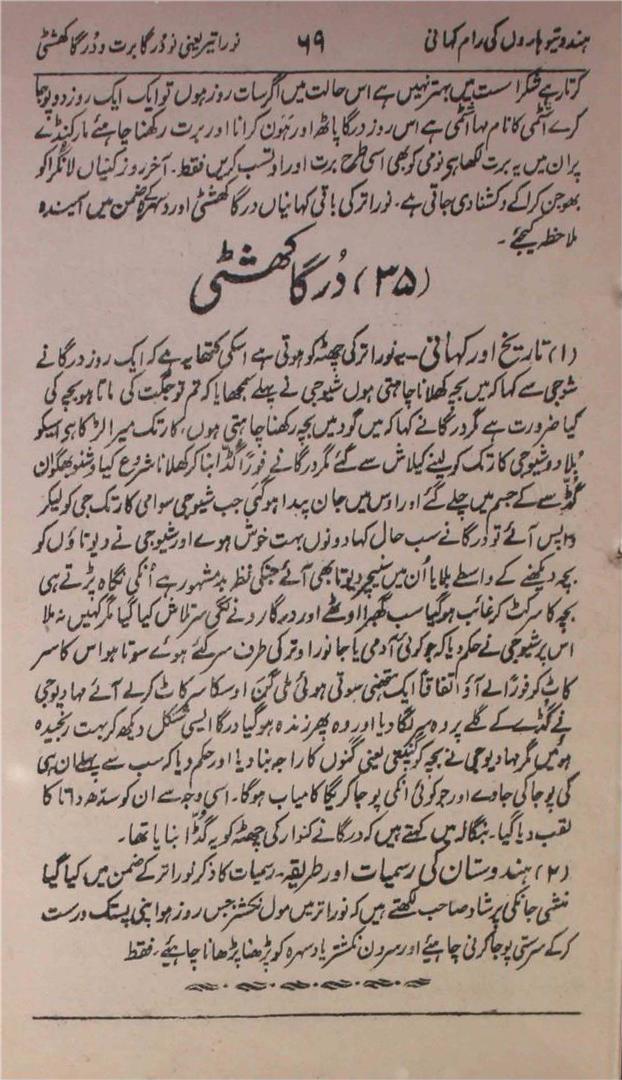 ہندو تیوہاروں کی رام کہانی ۶۹ نوراتر یعنی نو دُرگا برت و دُرگا کھشٹی
کرتا ہے شکر است میں بہتر نہیں ہے اس حالت میں اگر سات روز ہوں تو ایک ایک روز دو پوجا
کرے اشٹمی کا نام مہا اشٹمی ہے اس روز درگا پاٹھ اور ہَون کرانا اور برت رکھنا چاہئے مارکنڈے
پران میں یہ برت لکھا ہی نومی کو بھی اسی طرح برت اور اوتسب کریں فقط۔ آخر روز کنیاں لانگرا کو
بھوجن کرا کے دکشنا دی جاتی ہے۔ نوراتر کی باقی کہانیاں درگا کھشٹی اور دسہرہ کے ضمن میں آئیندہ
ملاحظہ کیجئے۔
(۳۵) دُرگا کھشٹی
(۱) تاریخ اور کہانی۔ یہ نوراتر کی چھٹہ کو ہوتی ہے اسکی کتھا یہ ہے کہ ایک روز درگا نے
شوجی سے کہا کہ میں بچہ کھلانا چاہتی ہوں شیوجی نے پہلے سمجھایا کہ تم تو جگت کی ماتا ہو بچے کی
کیا ضرورت ہے مگر درگا نے کہا کہ میں گود میں بچہ رکھنا چاہتی ہوں، کارتک میرا لڑکا ہی اسیکو
بُلا دو شیوجی کارتک کو لینے کیلاش سے گئے مگر درگا نے فوراً گڈا بنا کر کھلانا شروع کیا وشنو بھگوان
گڈے سے کے جسم میں چلے گئے اور اوس میں جان پیدا ہو گئی جب شیوجی سوامی کارتک جی کو لیکر
واپس آئے تو درگا نے سب حال کہا دونوں بہت خوش ہوے اور شیوجی نے دیوتاؤں کو
بچہ دیکھنے کے واسطے بلایا اُن میں سنیچر دیوتا بھی آئے جنکی نظر بد مشہور ہے اُنکی نگاہ پڑتے ہی
بچہ کا سر کٹ کر غائب ہو گیا سب گھبرا اوٹھے اور درگا رونے لگی سر تلاش کیا گیا مگر کہیں نہ ملا
اس پر شیوجی نے حکم دیا کہ جو کوئی آدمی یا جانور اوتر کی طرف سر کئے ہوئے سوتا ہو اس کا سر
کاٹ کر فوراً لے آؤ اتفاقاً ایک ہتھنی سوتی ہوئی ملی گن اوسکا سر کاٹ کر لے آئے مہادیوجی
نے گڈے کے گلے پر وہ سر لگا دیا اور وہ پھر زندہ ہو گیا درگا ایسی شکل دیکھ کر بہت رنجیدہ
ہوئیں مگر مہادیوجی نے بچہ کو گنپتی یعنی گنوں کا راجہ بنا دیا اور حکم دیا کہ سب سے پہلے ان ہی
کی پوجا کی جاوے اور جو کوئی انکی پوجا کریگا کامیاب ہوگا۔ اسی وجہ سے ان کو سدھ داتا کا
لقب دیا گیا۔ بنگالہ میں کہتے ہیں کہ درگا نے کنوار کی چھٹہ کو یہ گُڈا بنایا تھا۔
(۲) ہندوستان کی رسمیات اور طریقہ۔ رسمیات کا ذکر نوراتر کے ضمن میں کیا گیا
منشی جانکی پرشاد صاحب لکھتے ہیں کہ نوراتر میں مول نکشتر جس روز ہو اپنی پستک درست
کر کے سرستی پوجا کرنی چاہئے اور سرون نکشتر یا دسہرہ کو پڑھنا پڑھانا چاہئیے۔ فقط